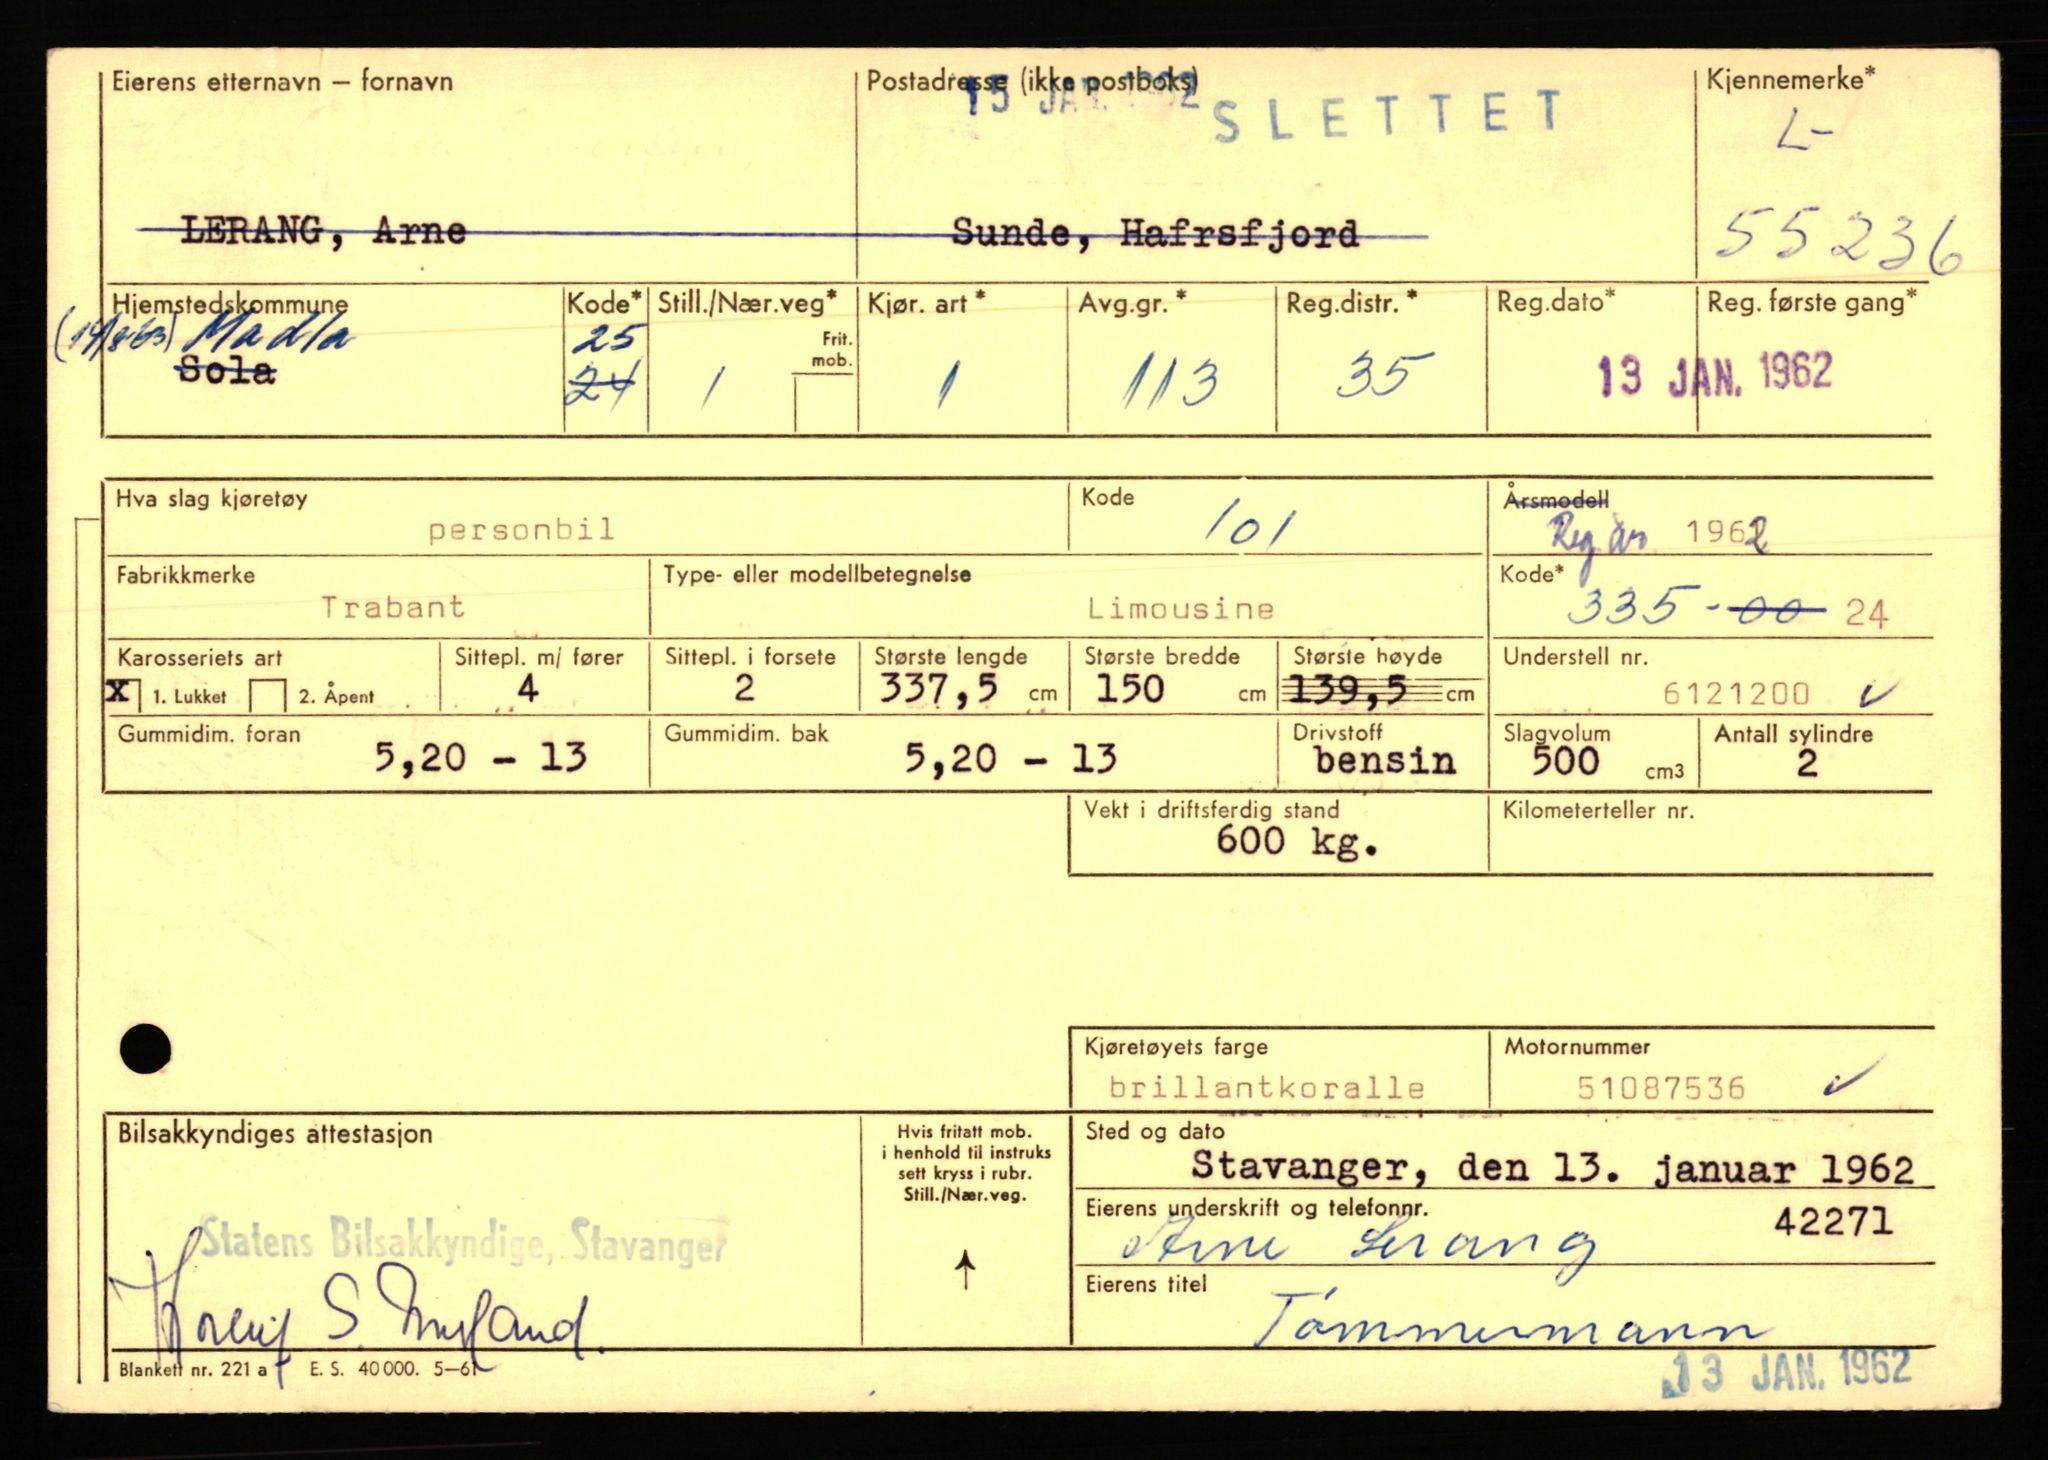 Eierens etternavn – fornavn
Postadresse (ikke postboks)
15 JAN. 1962
SLETTET
Kjennemerke*
L-
LERANG, Arne
Sunde, Hafrsfjord
55236
Hjemstedskommune
Kode*
Still./Nær.veg*
Frit. mob.
Kjør. art *
Avg.gr. *
Reg.distr. *
Reg.dato*
Reg. første gang*
Madla
25
Sola
24
1
1
113
35
13 JAN. 1962
Hva slag kjøretøy
personbil
Kode
101
Årsmodell
Reg. år. 1962
Fabrikkmerke
Trabant
Type- eller modellbetegnelse
Limousine
Kode*
335-00 24
Karosseriets art
X 1. Lukket 2. Åpent
Sittepl. m/ fører
4
Sittepl. i forsete
2
Største lengde
337,5 cm
Største bredde
150 cm
Største høyde
139,5 cm
Understell nr.
6121200 ✓
Gummidim. foran
5,20 – 13
Gummidim. bak
5,20 – 13
Drivstoff
bensin
Slagvolum
500 cm3
Antall sylindre
2
Vekt i driftsferdig stand
600 kg.
Kilometerteller nr.
Kjøretøyets farge
brillantkoralle
Motornummer
51087536 ✓
Bilsakkyndiges attestasjon
Statens Bilsakkyndige, Stavanger
Hvis fritatt mob.
i henhold til instruks
sett kryss i rubr.
Still./Nær.veg.
↑
Sted og dato
Stavanger, den 13. januar 1962
Eierens underskrift og telefonnr.
Arne Lerang
42271
Eierens titel
Tømmermann
Blankett nr. 221 a
E. S. 40 000. 5–61
13 JAN. 1962